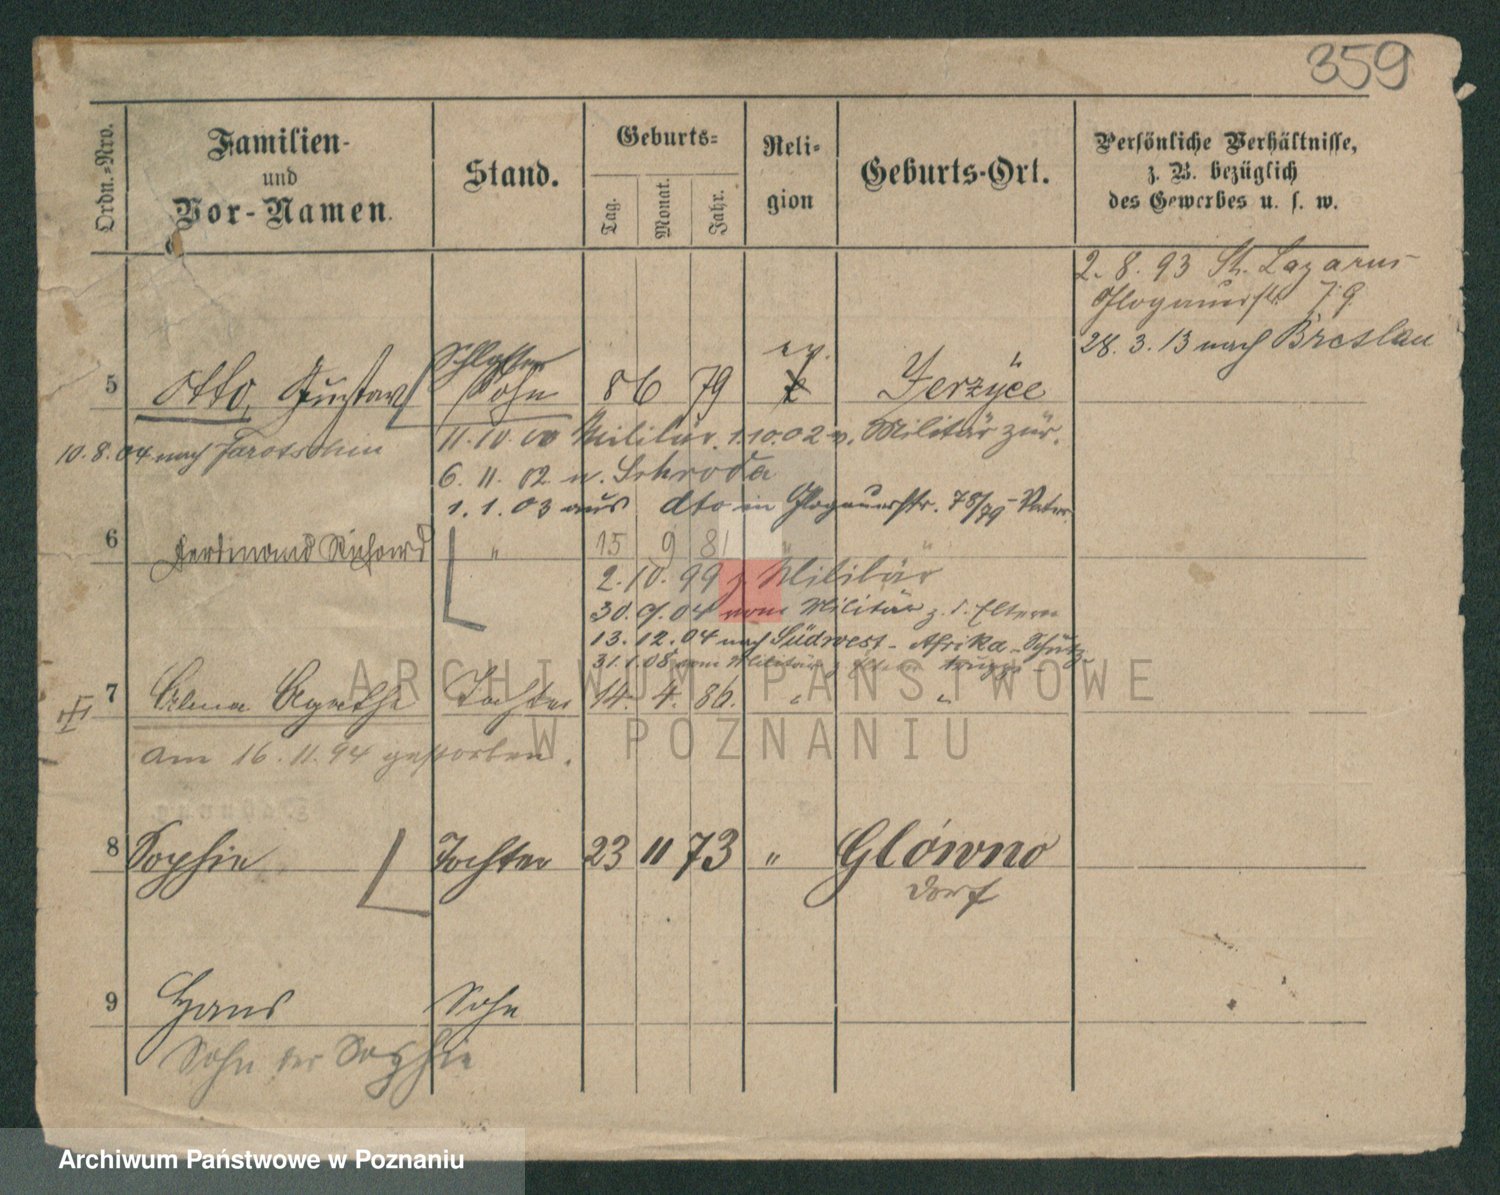 359
Ordn.-Nro.
Familien-
und
Vor-Namen.
Stand.
Geburts-
Tag.
Monat.
Jahr.
Reli-
gion
Geburts-Ort.
Persönliche Verhältnisse,
z. B. bezüglich
des Gewerbes u. s. w.
2. 8. 93 St. Lazarus
Glogauerstr. 79
28. 3. 13 nach Breslau
Schlosser
ev.
5 Otto, Gustav Sohn 8 6 79 Jerzyce
10. 8. 04 nach Jarotschin
11. 10. 00 Militär. 1.10.02 v. Militär zür.
6. 11. 02 n. Schroda
1. 1. 03 aus dto in Glogauerstr. 78/79 - Vater.
6 Ferdinand Richard " 15 9 81 " "
2. 10. 99 z. Militär
30. 9. 04 vom Militär z. d. Eltern
13. 12. 04 nach Südwest-Afrika-Schutz
31. 1. 08 vom Militär z. Eltern truppe
7 Alma Agathe Tochter 14. 4. 86. " "
am 16. 11. 94 gestorben.
8 Sophie Tochter 23 11 73 " Glówno
Dorf
9 Hans Sohn
Sohn der Sophie
ARCHIWUM PAŃSTWOWE
W POZNANIU
Archiwum Państwowe w Poznaniu